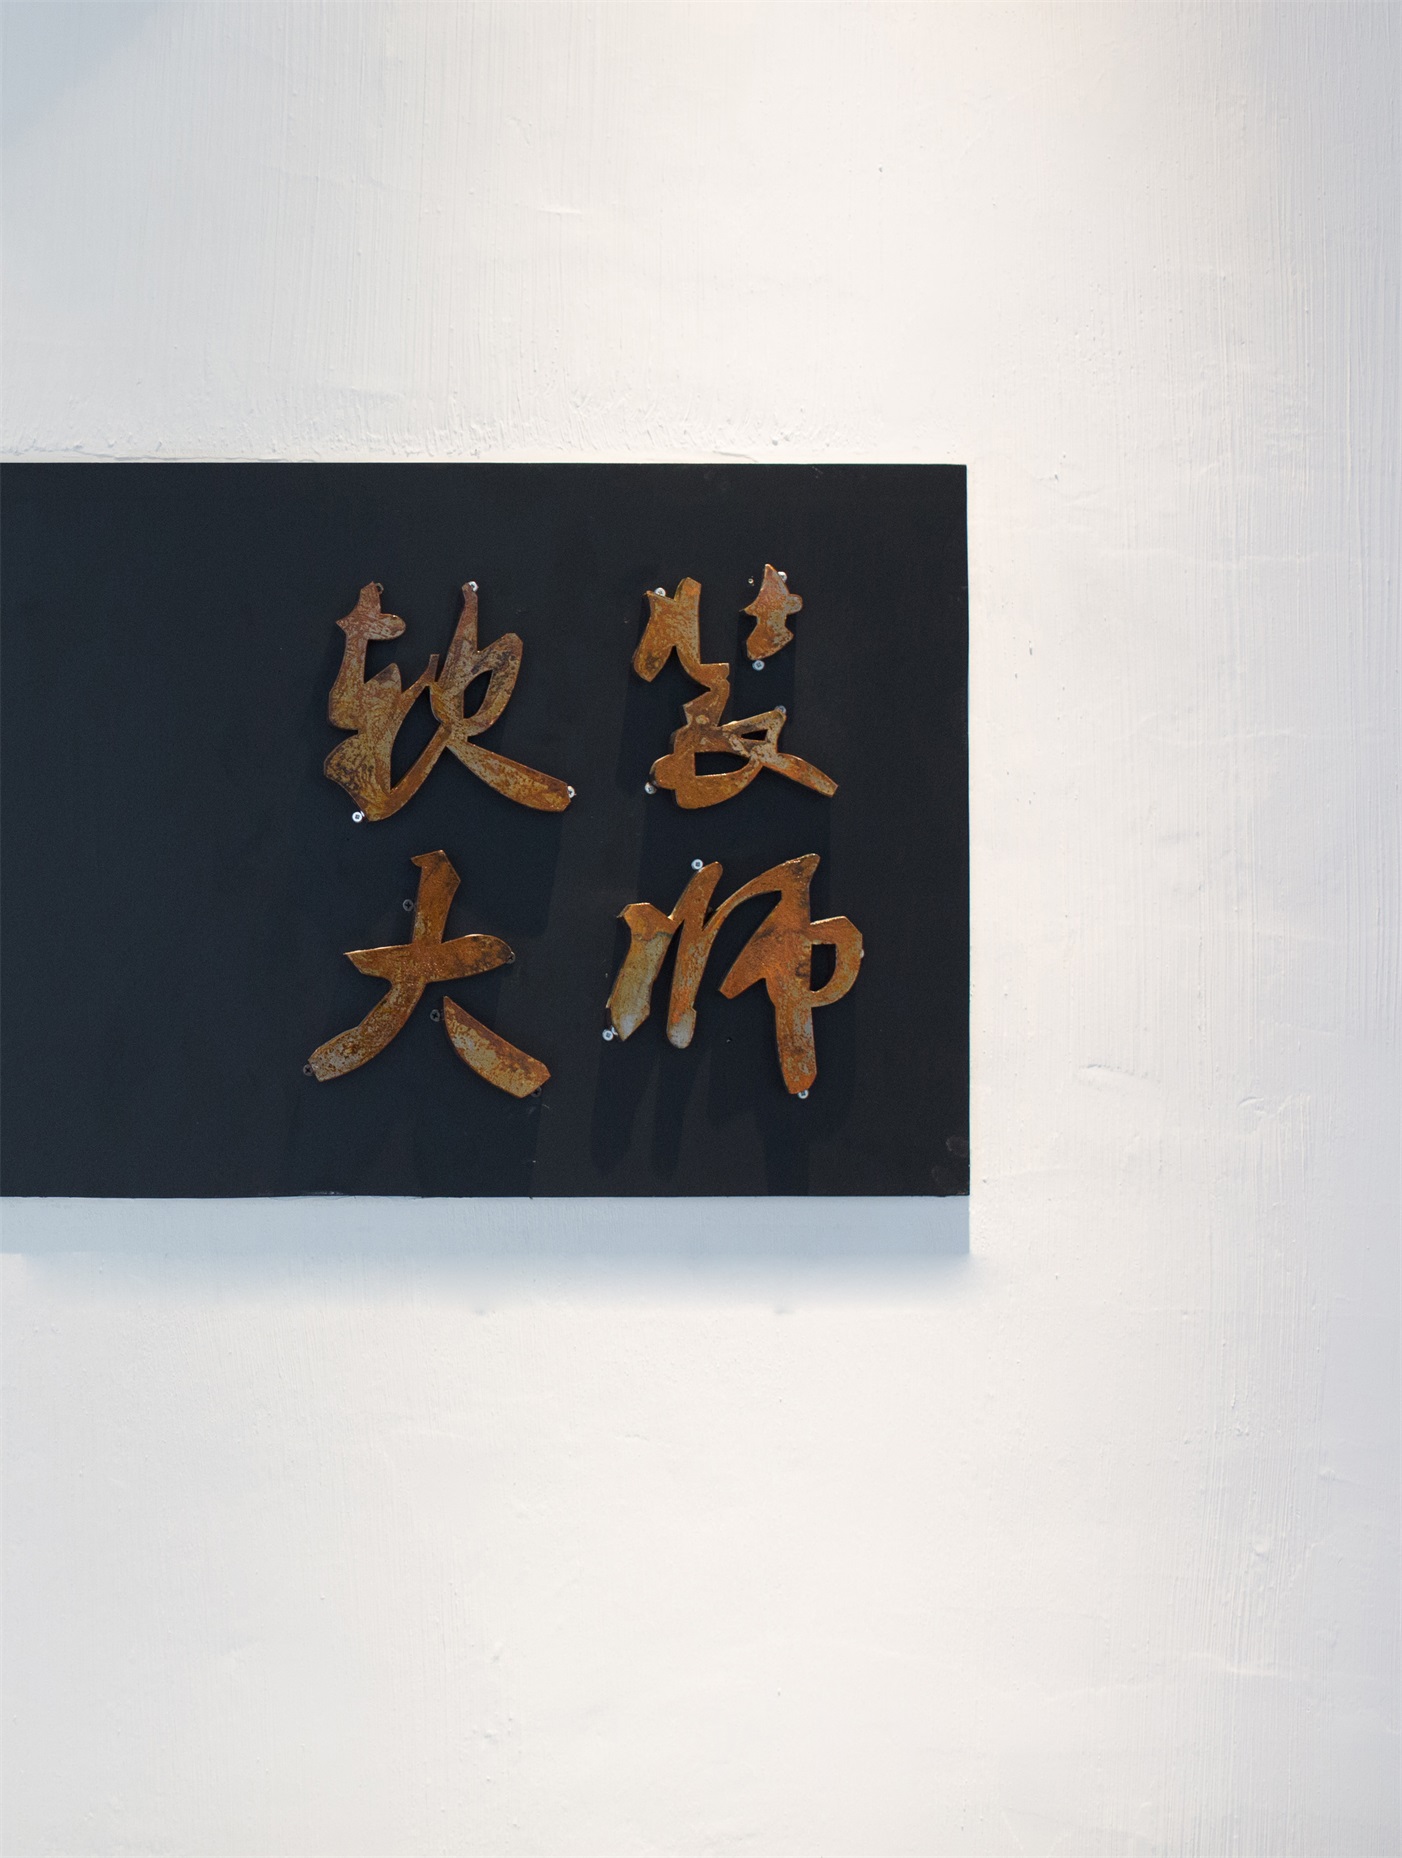 软装
大师